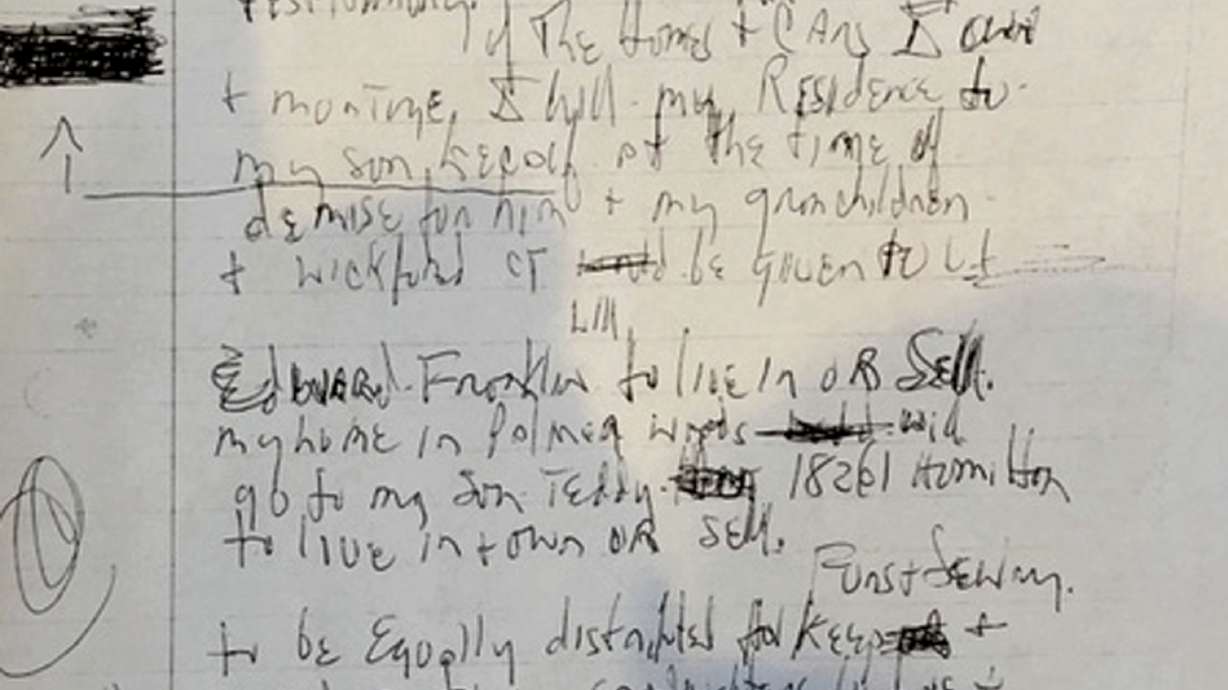 of The Homes + CARs I own
+ mortgage, I will my Residence to
my son, Kecalf at the time of
demise for him + my granchildren
+ Wickford CT be given to
will
Edward Franklin to live in OR Sell.
my home in Palmer woods will
go to my son Teddy. 18261 Hamilton
to live in + own OR sell.
Furs + Jewlry.
to be Equally distributed for Keeps +